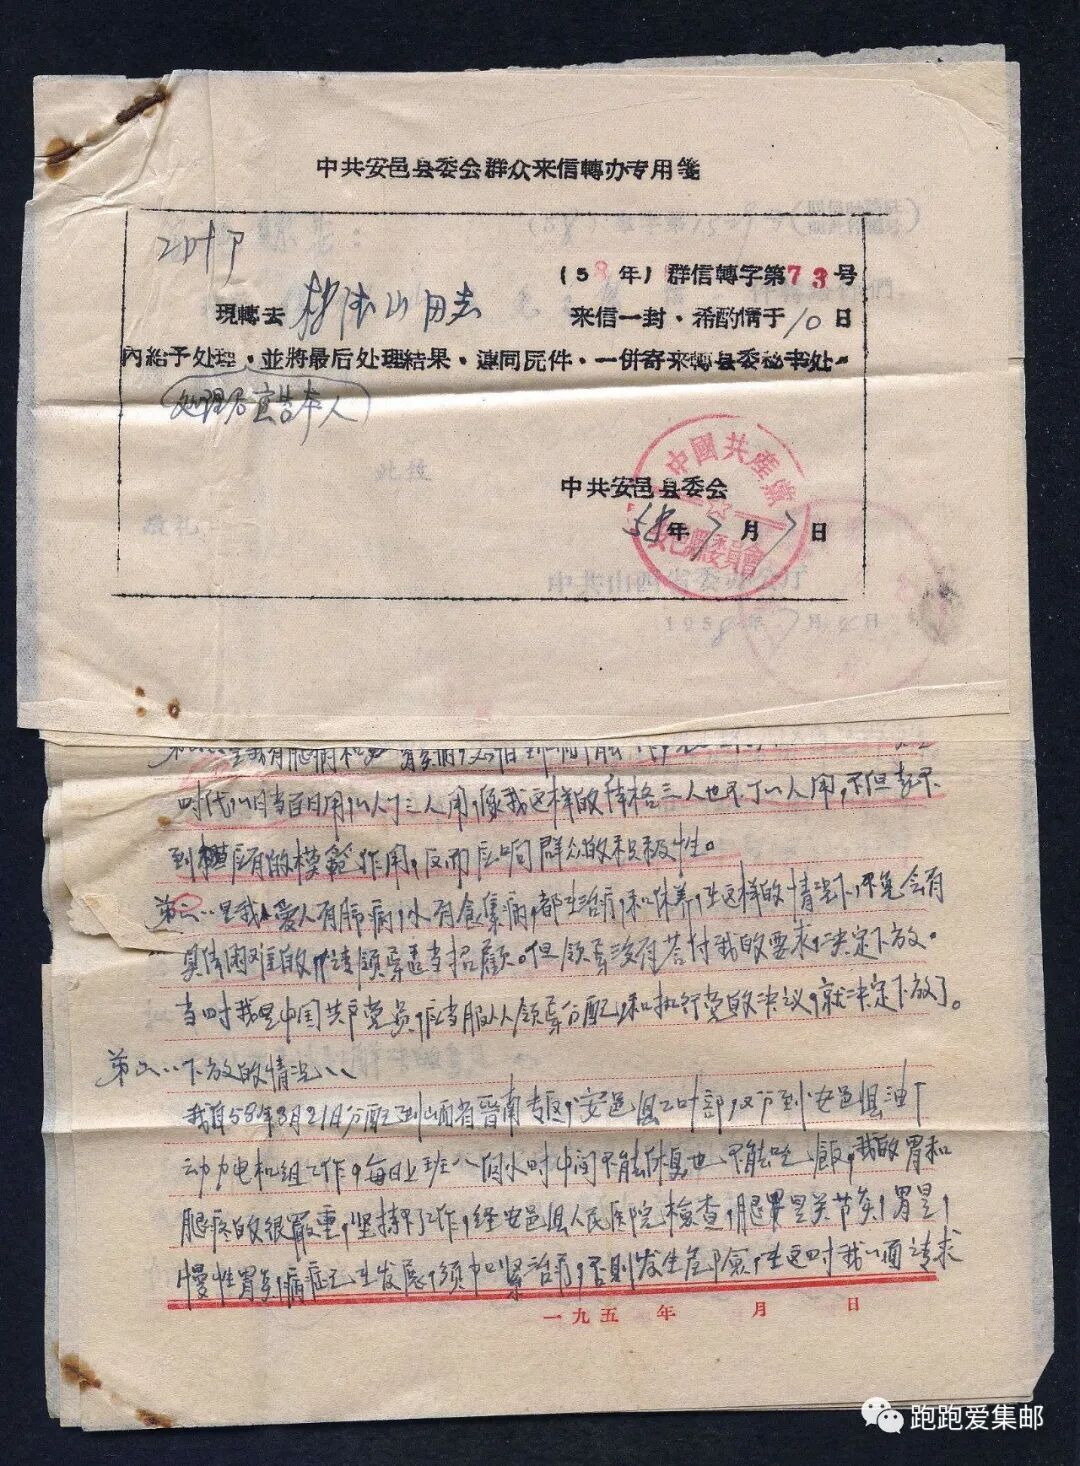 中共安邑县委会群众来信轉办专用笺
工叶卩
(58年)群信轉字第73号
現轉去 同志 来信一封·希酌情于10日
內給予处理,並將最后处理結果·連同原件·一併寄来轉县委秘书处
处理后直告本人
此致
敬礼
中共安邑县委会
58年7月7日
中國共產黨
安邑縣委員會
中共山西省委办公厅
1958年7月 日
时代以1日当百日用以1人丁三人用,像我这样的体格三人也不丁以人用,不但起不
到应有的模範作用,反而应响群众的积极性。
第六、是我爱人有肺病,小有食集病,都在治疗和休养,在这样的情况下,不免会有
具体困难的,请领导适当招顧。但领导没有答付我的要求,决定下放。
当时我是中国共产党员,应当服从领导分配和执行党的决议,就决定下放了。
第二、下放的情况、
我自58年3月21日分配到山西省晋南专区,安邑县工叶部,又分到安邑县油厂
动力电机组工作,每日上班八個小时中间不能休息也不能吃飯,我的胃和
腿疼的很嚴重,坚持不了工作,经安邑县人民医院檢查,腿果是关节炎,胃是,
慢性胃炎,病症已在发展,须加紧治疗,否則发生危險,在这时我一面请求
一九五 年 月 日
跑跑爱集邮